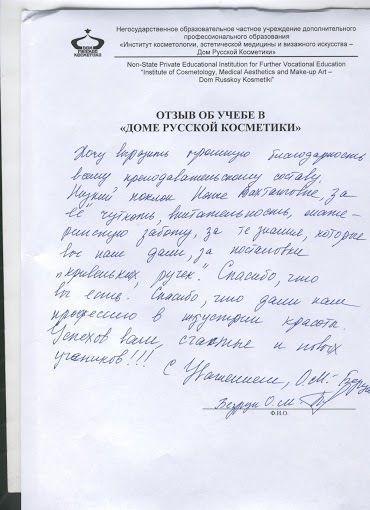 ДОМ
РУССКОЙ
КОСМЕТИКИ
Негосударственное образовательное частное учреждение дополнительного
профессионального образования
«Институт косметологии, эстетической медицины и визажного искусства –
Дом Русской Косметики»
Non-State Private Educational Institution for Further Vocational Education
"Institute of Cosmetology, Medical Aesthetics and Make-up Art –
Dom Russkoy Kosmetiki"
ОТЗЫВ ОБ УЧЕБЕ В
«ДОМЕ РУССКОЙ КОСМЕТИКИ»
Хочу выразить огромную благодарность
всему преподавательскому составу.
Низкий поклон Нонне Вахтанговне, за
её чуткость, внимательность, мате-
ринскую заботу, за те знания, которые
вы нам дали, за постановки
"кривеньких ручек". Спасибо, что
вы есть. Спасибо, что дали нам
профессию в индустрии красоты.
Успехов вам, счастье и новых
учеников!!!
С Уважением, О.М.
О.М
Ф.И.О.